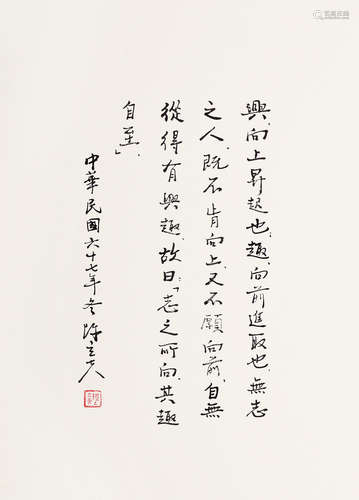 興，向上昇起也，趣，向前進取也，無志
之人，既不肯向上，又不願向前，自無
從得有興趣，故曰：「志之所向，其趣
自至」。
中華民國六十七年冬陳立夫